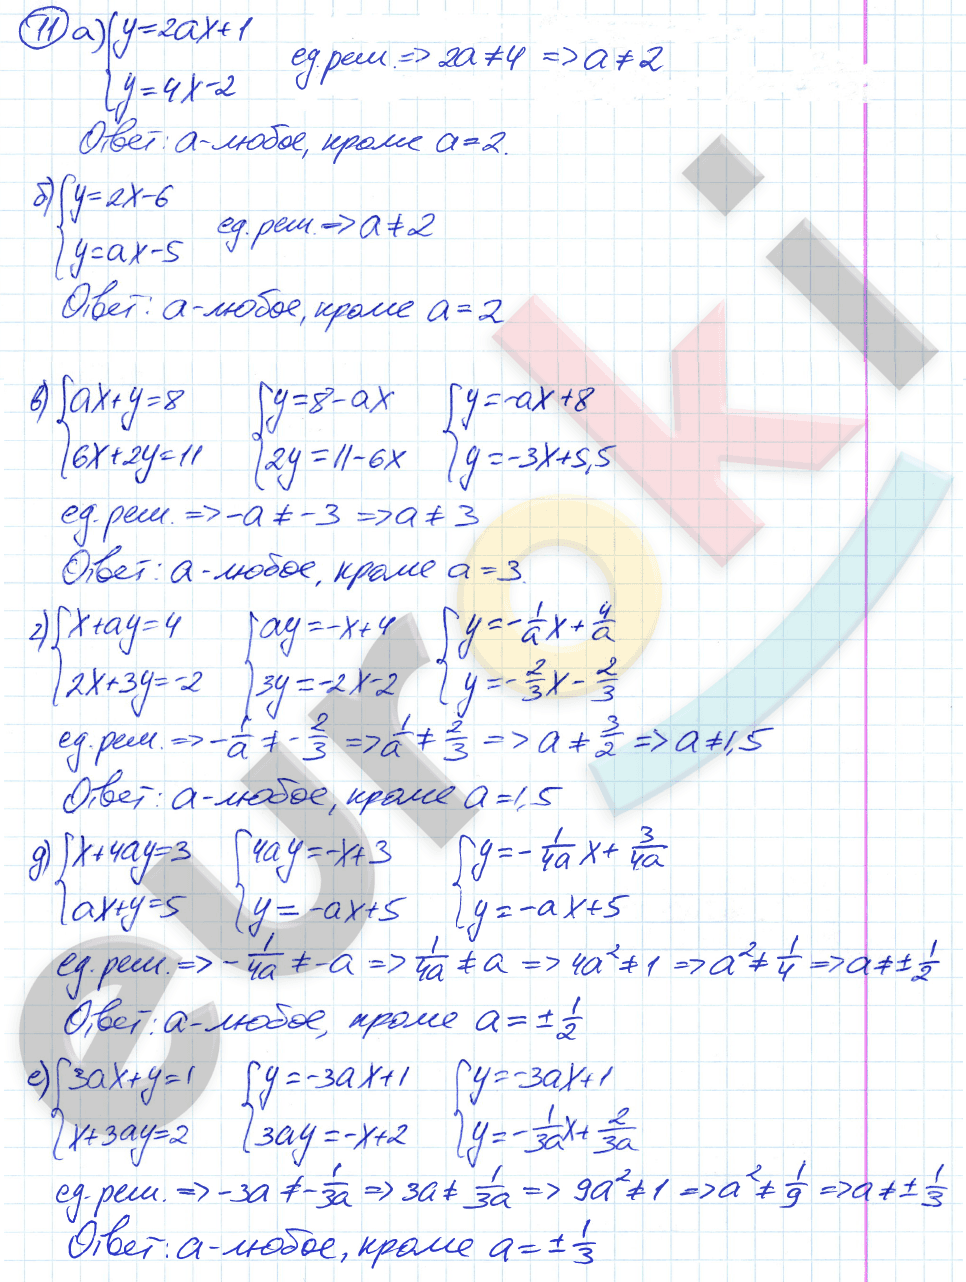 11 а) { y=2ax+1
y=4x-2 ед. реш. => 2a≠4 => a≠2
Ответ: a-любое, кроме a=2.
б) { y=2x-6
y=ax-5 ед. реш. => a≠2
Ответ: a-любое, кроме a=2
в) { ax+y=8 { y=8-ax { y=-ax+8
6x+2y=11 2y=11-6x y=-3x+5,5
ед. реш. => -a≠-3 => a≠3
Ответ: a-любое, кроме a=3.
г) { x+ay=4 { ay=-x+4 { y=-1/a x+4/a
2x+3y=-2 3y=-2x-2 y=-2/3 x-2/3
ед. реш. => -1/a≠-2/3 => 1/a≠2/3 => a≠3/2 => a≠1,5
Ответ: a-любое, кроме a=1,5
д) { x+4ay=3 { 4ay=-x+3 { y=-1/4a x+3/4a
ax+y=5 y=-ax+5 y=-ax+5
ед. реш. => -1/4a≠-a => 1/4a≠a => 4a²≠1 => a²≠1/4 => a≠±1/2
Ответ: a-любое, кроме a=±1/2
е) { 3ax+y=1 { y=-3ax+1 { y=-3ax+1
x+3ay=2 3ay=-x+2 y=-1/3a x+2/3a
ед. реш. => -3a≠-1/3a => 3a≠1/3a => 9a²≠1 => a²≠1/9 => a≠±1/3
Ответ: a-любое, кроме a=±1/3
euroki